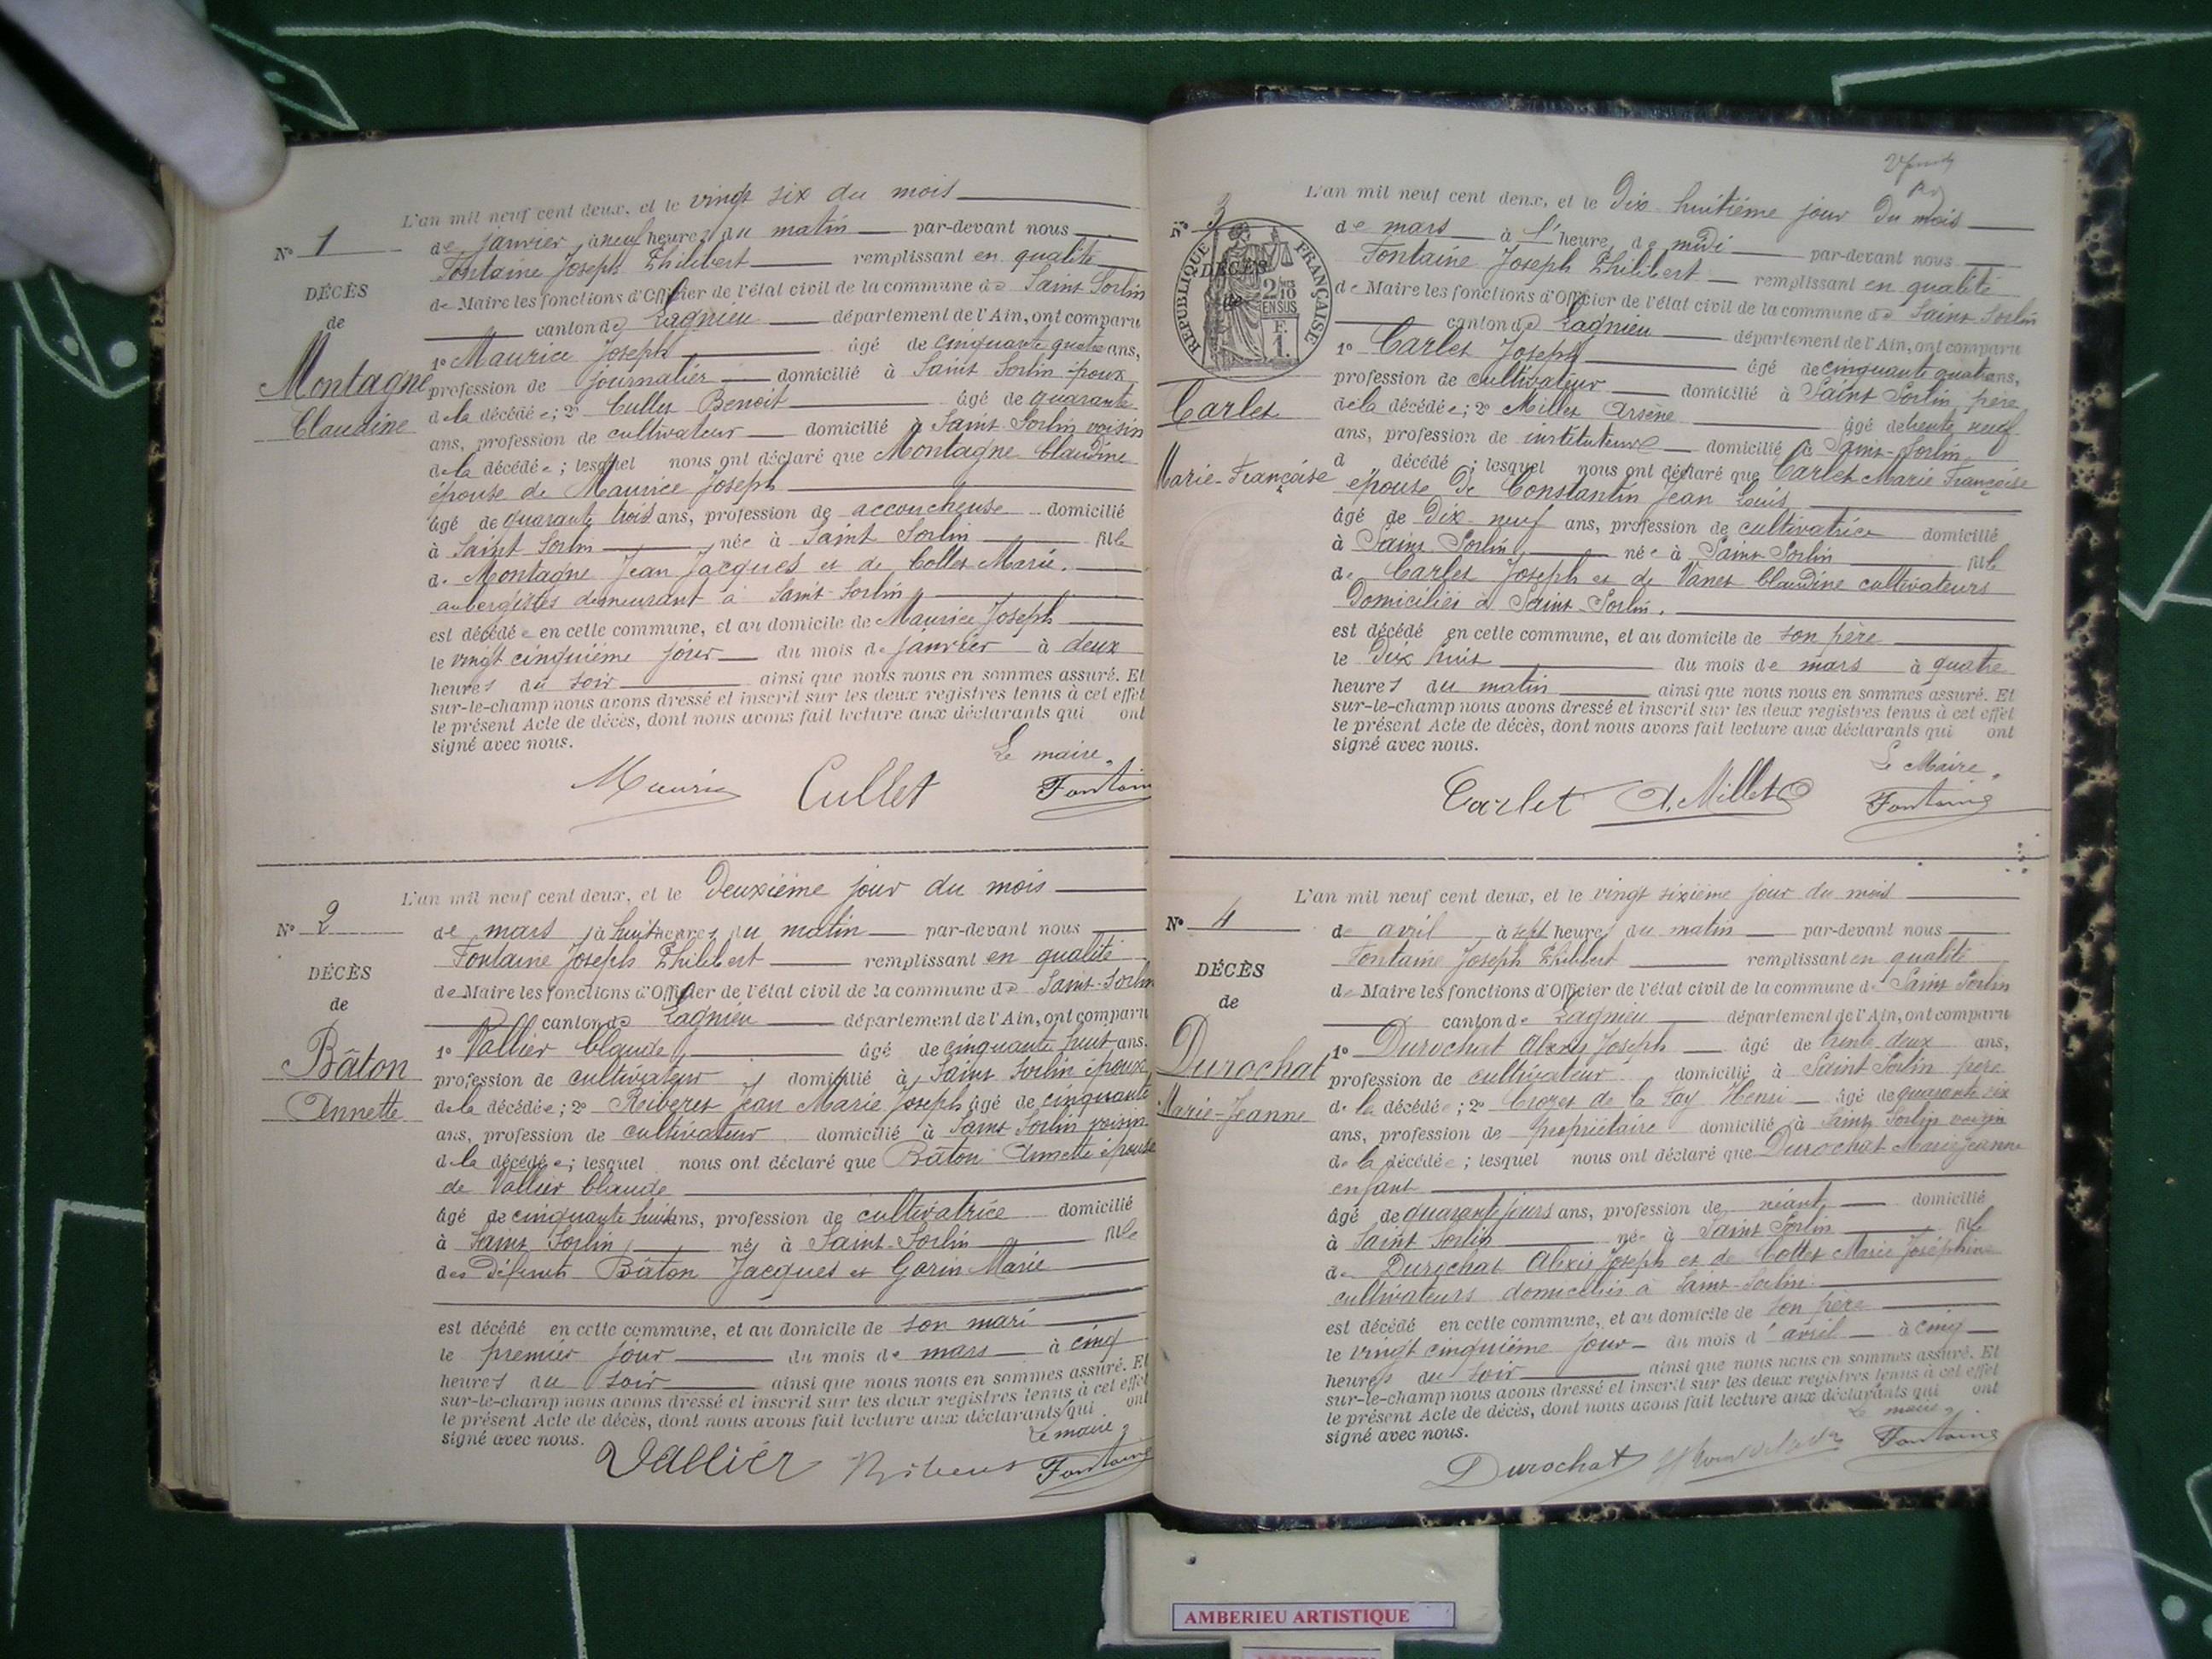 L'an mil neuf cent deux, et le vingt six du mois
N° 1
de janvier, à neuf heures du matin par-devant nous
Fontaine Joseph Philibert remplissant en qualité
DÉCÈS
de Maire les fonctions d'Officier de l'état civil de la commune de Saint Sorlin
de
canton de Lagnieu département de l'Ain, ont comparu
1° Maurice Joseph âgé de cinquante quatre ans,
Montagne
profession de journalier domicilié à Saint Sorlin époux
Claudine
de la décédée; 2° Cullet Benoit âgé de quarante
ans, profession de cultivateur domicilié à Saint Sorlin voisin
de la décédée; lesquel nous ont déclaré que Montagne Claudine
épouse de Maurice Joseph
âgé de quarante trois ans, profession de accoucheuse domicilié
à Saint Sorlin née à Saint Sorlin fille
de Montagne Jean Jacques et de Collet Marie.
aubergistes demeurant à Saint-Sorlin
est décédée en cette commune, et au domicile de Maurice Joseph
le vingt cinquième jour du mois de janvier à deux
heures du soir ainsi que nous nous en sommes assuré. Et
sur-le-champ nous avons dressé et inscrit sur les deux registres tenus à cet effet
le présent Acte de décès, dont nous avons fait lecture aux déclarants qui ont
signé avec nous.
Le maire,
Maurice Cullet Fontaine
L'an mil neuf cent deux, et le Deuxième jour du mois
N° 2
de mars à huit heures du matin par-devant nous
Fontaine Joseph Philibert remplissant en qualité
DÉCÈS
de Maire les fonctions d'Officier de l'état civil de la commune de Saint-Sorlin
de
canton de Lagnieu département de l'Ain, ont comparu
1° Vallier Claude âgé de cinquante huit ans.
Bâton
profession de cultivateur domicilié à Saint Sorlin époux
Annette
de la décédée; 2° Reiberet Jean Marie Joseph âgé de cinquante
ans, profession de cultivateur domicilié à Saint Sorlin voisin
de la décédée; lesquel nous ont déclaré que Bâton Annette épouse
de Vallier Claude
âgé de cinquante huit ans, profession de cultivatrice domicilié
à Saint Sorlin né à Saint-Sorlin fille
des Défunts Bâton Jacques et Gorin Marie
est décédé en cette commune, et au domicile de son mari
le premier jour du mois de mars à cinq
heures du soir ainsi que nous nous en sommes assuré. Et
sur-le-champ nous avons dressé et inscrit sur les deux registres tenus à cet effet
le présent Acte de décès, dont nous avons fait lecture aux déclarants qui ont
signé avec nous.
Le maire,
Vallier Fontaine
L'an mil neuf cent deux, et le Dix huitième jour Du mois
N° 3
de mars à l'heure de midi par-devant nous
Fontaine Joseph Philibert remplissant en qualité
RÉPUBLIQUE FRANÇAISE
DÉCÈS
de
2/10 EN SUS
F. 1.
de Maire les fonctions d'Officier de l'état civil de la commune de Saint Sorlin
canton de Lagnieu département de l'Ain, ont comparu
1° Carlet Joseph âgé de cinquante quatre ans,
profession de cultivateur domicilié à Saint Sorlin père
Carlet
de la décédée; 2° Millet Arsène âgé de trente neuf
ans, profession de instituteur domicilié à Saint-Sorlin
Marie-Françoise
d décédé ; lesquel nous ont déclaré que Carlet Marie Françoise
épouse De Constantin Jean Louis
âgé de Dix-neuf ans, profession de cultivatrice domicilié
à Saint Sorlin née à Saint-Sorlin fille
de Carlet Joseph et de Vanet Claudine cultivateurs
Domiciliés à Saint-Sorlin.
est décédé en cette commune, et au domicile de son père
le Dix huit du mois de mars à quatre
heures du matin ainsi que nous nous en sommes assuré. Et
sur-le-champ nous avons dressé et inscrit sur les deux registres tenus à cet effet
le présent Acte de décès, dont nous avons fait lecture aux déclarants qui ont
signé avec nous.
Le Maire,
Carlet A. Millet Fontaine
L'an mil neuf cent deux, et le vingt sixième jour du mois
N° 4
de avril à sept heures du matin par-devant nous
Fontaine Joseph Philibert remplissant en qualité
DÉCÈS
de Maire les fonctions d'Officier de l'état civil de la commune de Saint Sorlin
de
canton de Lagnieu département de l'Ain, ont comparu
1° Durochat Alexis Joseph âgé de trente deux ans,
Durochat
profession de cultivateur domicilié à Saint Sorlin père
Marie-Jeanne
de la décédée; 2° Crozet de la Fay Henri âgé de quarante six
ans, profession de propriétaire domicilié à Saint Sorlin voisin
de la décédée; lesquel nous ont déclaré que Durochat Marie Jeanne
enfant
âgé de quarante jours ans, profession de néant domicilié
à Saint Sorlin née à Saint Sorlin fille
de Durochat Alexis Joseph et de Collet Marie Joséphine
cultivateurs domiciliés à Saint-Sorlin.
est décédé en cette commune, et au domicile de son père
le vingt cinquième jour du mois d'avril à cinq
heures du soir ainsi que nous nous en sommes assuré. Et
sur-le-champ nous avons dressé et inscrit sur les deux registres tenus à cet effet
le présent Acte de décès, dont nous avons fait lecture aux déclarants qui ont
signé avec nous.
Le maire,
Durochat Fontaine
AMBERIEU ARTISTIQUE